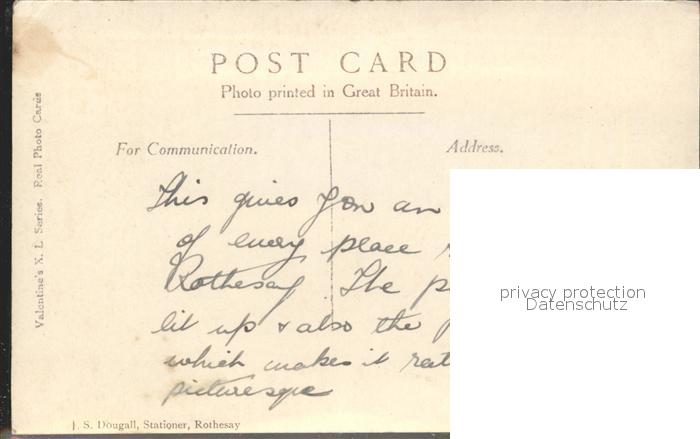 POST CARD
Photo printed in Great Britain.
For Communication.
Address.
Valentine's X. L Series. Real Photo Cards
This gives you an
of every place
Rothesay. The
lit up & also the
which makes it
picturesque
privacy protection
Datenschutz
J. S. Dougall, Stationer, Rothesay